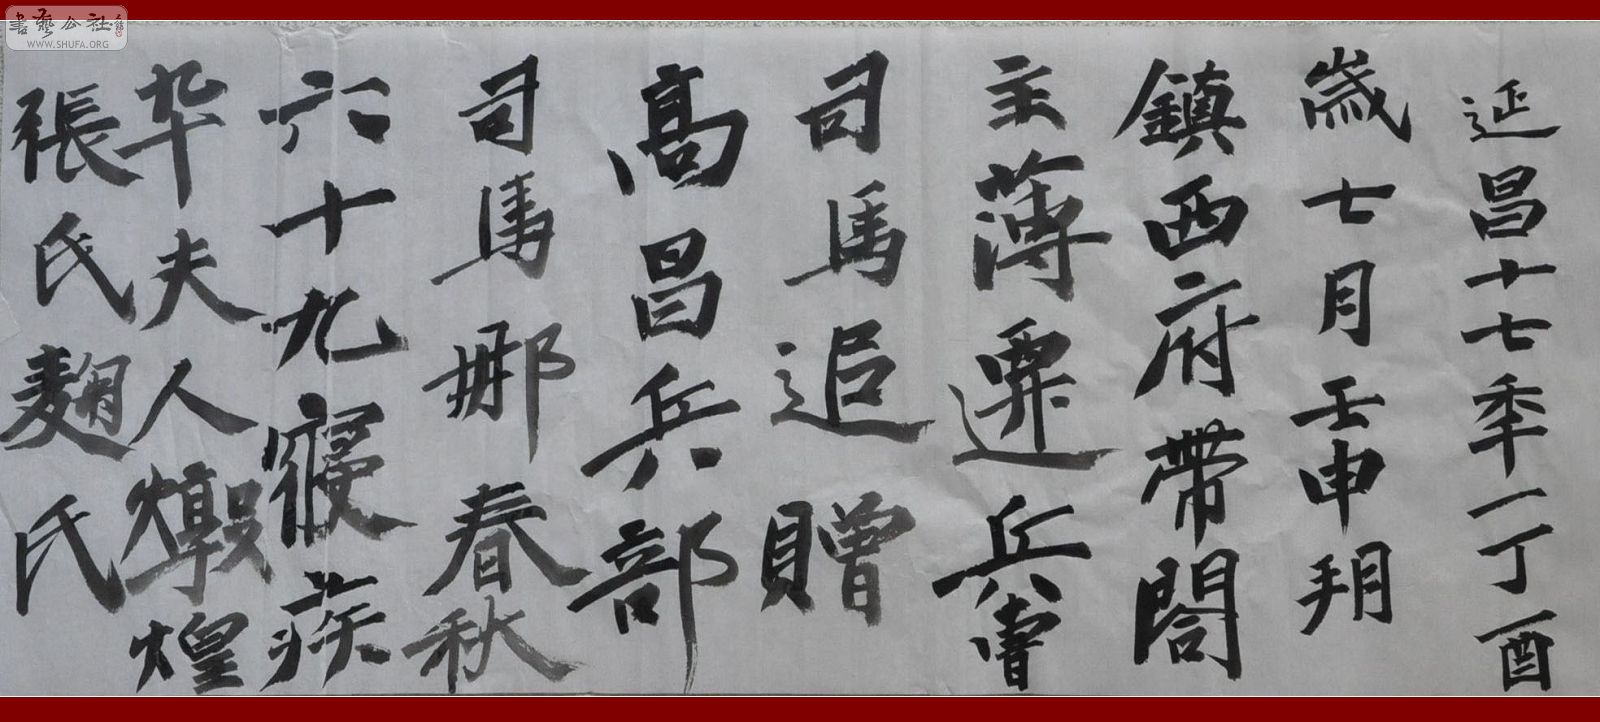 延昌十七季一丁酉
歲七月壬申朔
鎮西府帶閤
主薄遷兵曹
司馬追贈
高昌兵部
司馬那春秋
六十九寝疾
卒夫人燉煌
張氏麹氏
書藝公社
WWW.SHUFA.ORG